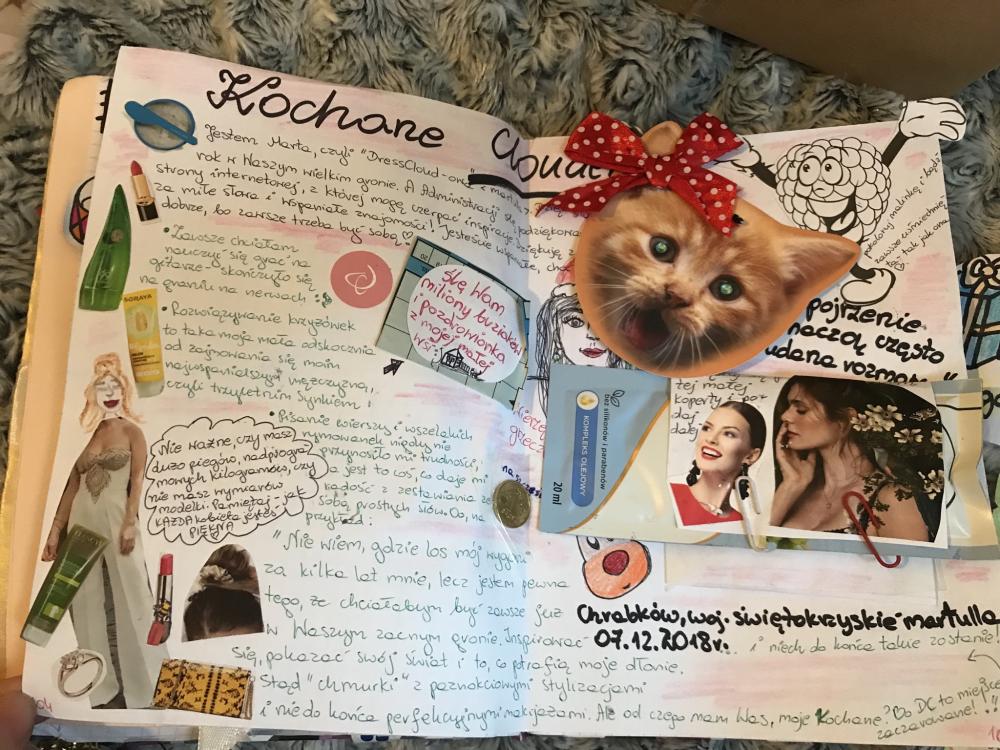 Kochane
Jestem Marta, czyli "DressCloud-owa
rok w Waszym wielkim gronie. A Administracji
strony internetowej, z której mogę czerpać inspirację
za miłe słowa i wspaniałe znajomości! Jesteście
dobrze, bo zawsze trzeba być sobą ♡
• Zawsze chciałam
nauczyć się grać na
gitarze - skończyło się
na graniu na nerwach
• Rozwiązywanie krzyżówek
to taka moja mała odskocznia
od zajmowania się moim
najwspanialszym mężczyzną,
czyli trzyletnim Synkiem!
• Pisanie wierszy i wszelakich
rymowanek nigdy nie
przynosiło mi trudności,
a jest to coś, co daje mi
radość z zestawiania ze
sobą prostych słów. Oo, na
przykład:
Nie ważne, czy masz
dużo piegów, nadprogra-
mowych kilogramów, czy
nie masz wymiarów
modelki. Pamiętaj - jak
KAŻDA kobieta jesteś
PIĘKNA
SORAYA
Ślę Wam
miliony buziaków
i pozdrowionka
z mojej małej
wsi:
"Nie wiem, gdzie los mój
za kilka lat mnie, lecz jestem pewna
tego, że chciałabym być zawsze już
w Waszym zacnym gronie. Inspirować
się, pokazać swój świat i to, co potrafią moje dłonie.
Stąd "chmurki" z paznokciowymi stylizacjami
i nie do końca perfekcyjnymi makijażami. Ale od czego mam Was, moje Kochane? Bo DC to miejsce
zaczarowane!
zawsze uśmiechnię-
tą - tak jak ona
pojrzenie
naczą często
udana
tej małej
koperty i po-
daj
dalej
bez silikonów i parabenów
KOMPLEKS OLEJOWY
20 ml
Chrabków, woj. świętokrzyskie martulla
07.12.2018r.
i niech do końca takie zostanie